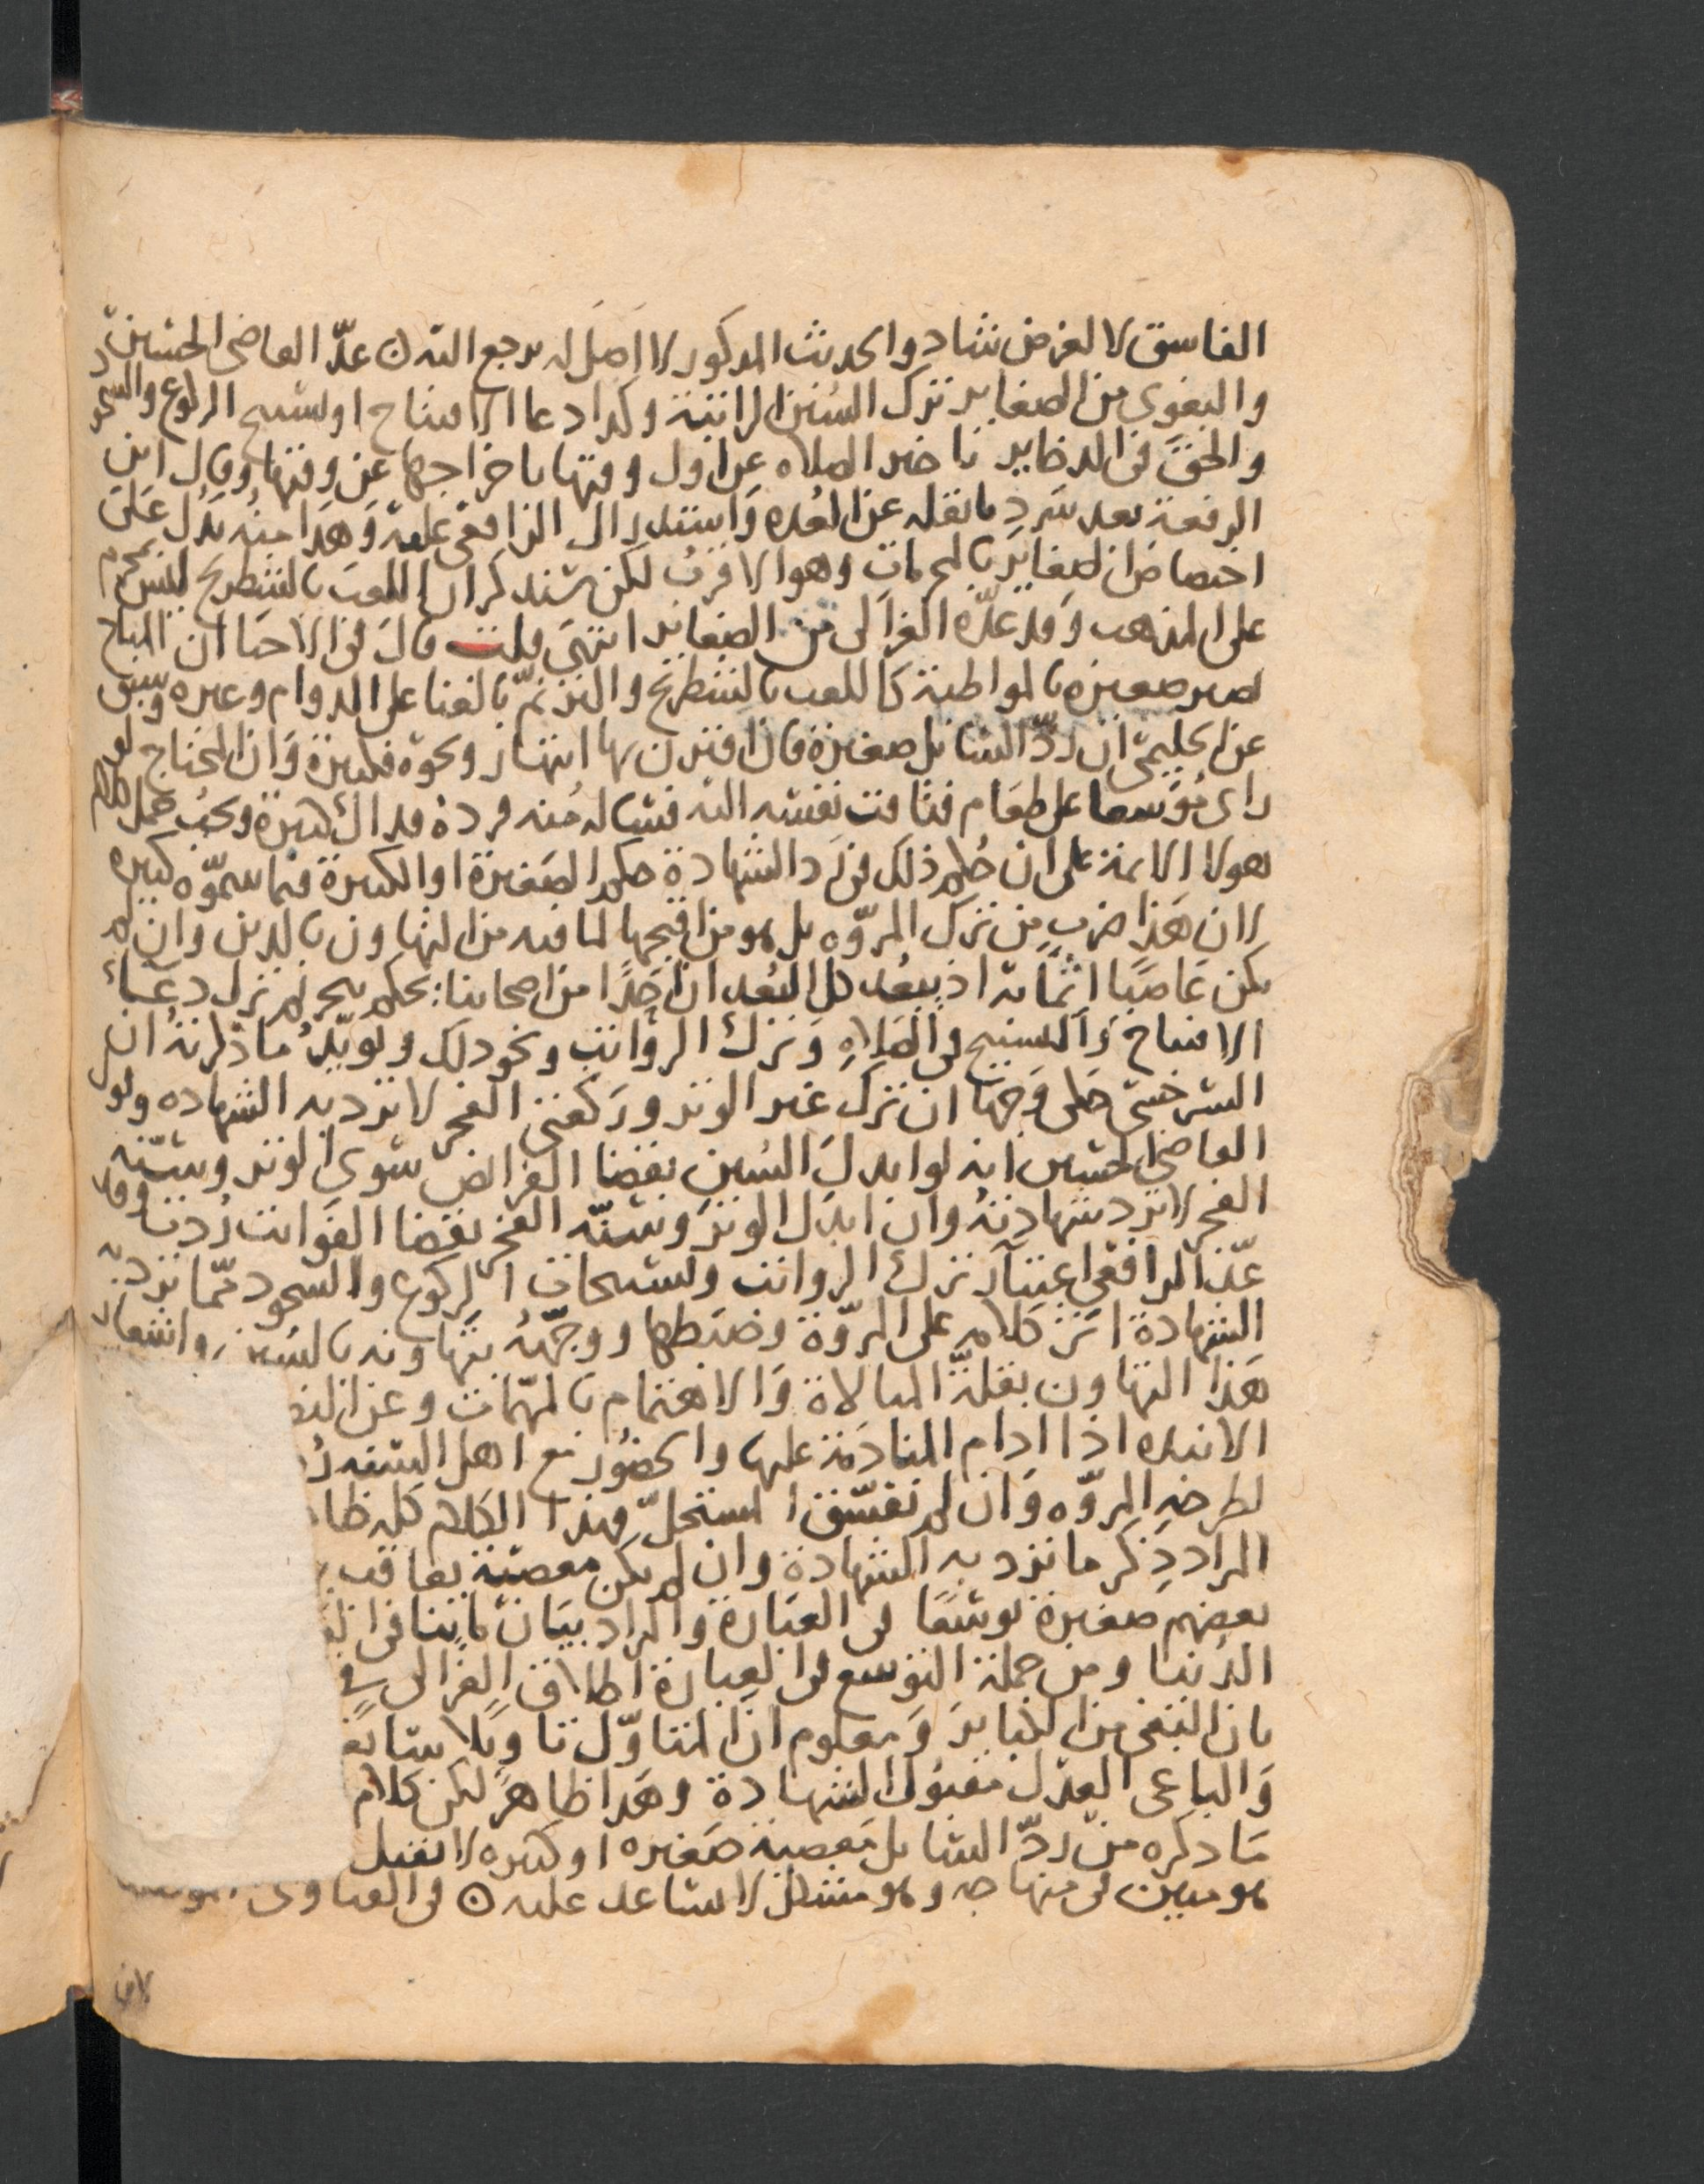 الفاسق لا لغرض شاد والحديث المذكور لا اصل له يرجع اليه ن عدّ القاضي الحسين
والبغوي من الصغاير ترك السُنن الراتبة وكذا دعا الافتتاح او تسبيح الركوع والسجود
والحق في الدخاير تاخير الصلاه عن اول وقتها باخراجها عن وقتها وقال ابن
الرفعة بعد سَردِ ما نقله عن العُده وَاستدراك الرافعي عليه وَهَذا منهُ يَدُل عَلى
اختصاص الصغاير بالمحرمات وهو الاقربُ لكن سنذكر ان اللعب بالشطرنج ليس بمحرم
على المذهب وَقد عَدّه الغزالى من الصغاير انتهَى قلت قالَ في الاحيا ان المباح
يصير صغيره بالمواظبة كاللعب بالشطرنج والترنّم بالغنا على الدوام وغيره وسبق
عن الحليمي ان ردّ السايل صغيرة فان اقترن بها انتهار ونحوه فكبيرة وَان المحتاج لو
راى مُوَسعا على طعَام فتاقت نفسُه اليه فساله مُنه فرده فداك كبيرة ويجبُ حمل كلام
هولا الايمة على ان حُكم ذلك في رَد الشهادة حكم الصَغيرة او الكبيرة فيما سمّوه كبيره
لان هَذا ضرب مِن ترك المروّه بل هو من اقبحها لما فيه من التهاون بالدين وان لم
يكن عَاصيًا اثمًا به اذ يبعُد كل البُعد ان احَدًا من اصحابنا يحكم بتحريم ترك دعَاء
الافتتاح وَالتسبيح في الصَلاه وَترك الرواتب ونحو ذلك ويُويّدُ ما ذكرتهُ ان
السرخسي حَكى وَجهًا ان ترك غير الوتر وركعتي الفجر لا ترد به الشهاده وقول
القاضي الحسين انه لو ابدلَ السُنن بقضا الفرائض سوى الوتر وسُنّه
الفجر لا ترد شهادتهُ وان ابدَل الوترَ وسُنّه الفجر بقضا الفوايت رُدت وقد
عّد الرافعي اعتياد ترك الرواتب وتسبيحات الركوع والسجود مّما ترد به
الشهادة اثر كلامه على المروّة وضَبطها ووجّههُ بتهاونه بالسُنن واشعار
هَذا التهاون بقلةّ المبالاة وَالاهتمام بالمهمّات وعن النص
الانبده اذا ادام المنادَمة عليها والحضُور مع اهل السفه رُ
لطرحهِ المروّه وَان لم نفسّق المستحلّ وهذا الكلام كله ظا
المراد ذِكر ما ترد به الشهادة وان لم يكن معصية يعاقب
بعضهم صَغيرة توسّعًا في العبَارة والمراد بيَان ما ينافى
الدُنيا ومن جملة التوسع في العبارة اطلاق الغزالى
بان البَغي من الكبايرَ وَمعلوم ان المتاوّل تاويلا سَايغ
وَالباغى العدل مقبُول الشهادة وهَذا ظاهر لكن كلام
مَا ذكره من ردّ السَايل مَعصيَة صَغيره او كبيره لا تقبل
هو مبين في منهاجه وهو مشكل لا يساعد عليه ن في الفتاوى
لان